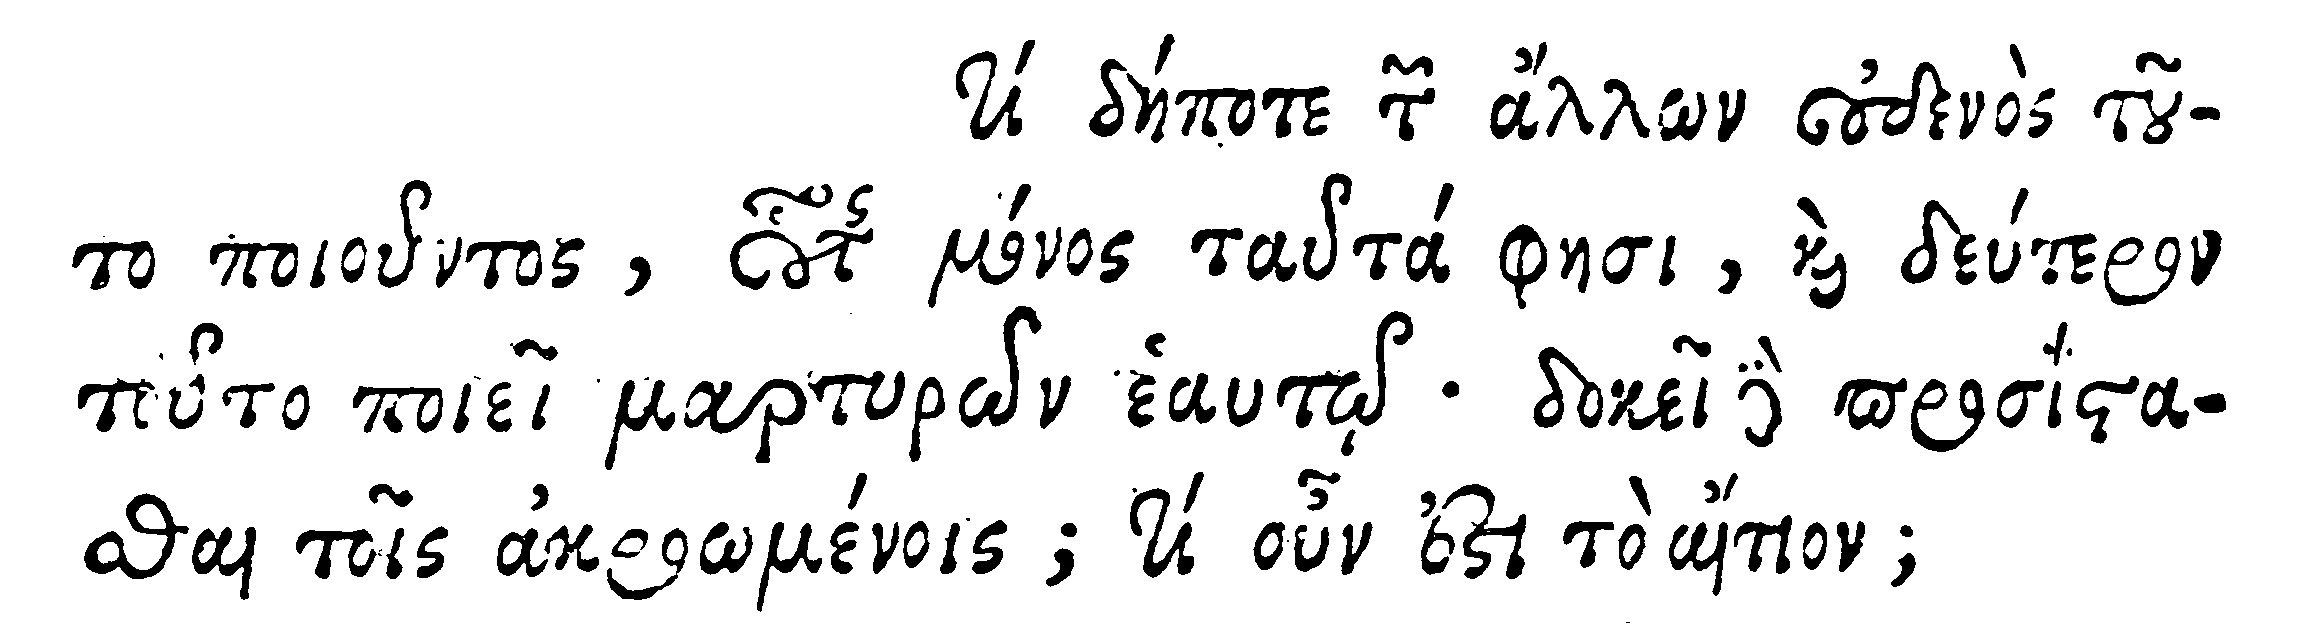 τί δήποτε τῶν ἄλλων οὐδενὸς τοῦ-
το ποιοῦντος, οὗτος μόνος ταῦτά φησι, καὶ δεύτερον
τοῦτο ποιεῖ μαρτυρῶν ἑαυτῷ· δοκεῖ γὰρ προσίστα-
σθαι τοῖς ἀκροωμένοις; τί οὖν ἐστι τὸ αἴτιον;